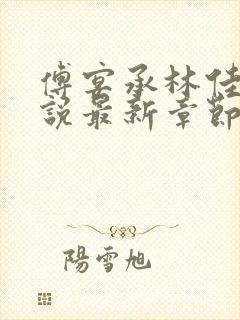 傅宴承林佳
說最新章節
陽雪旭